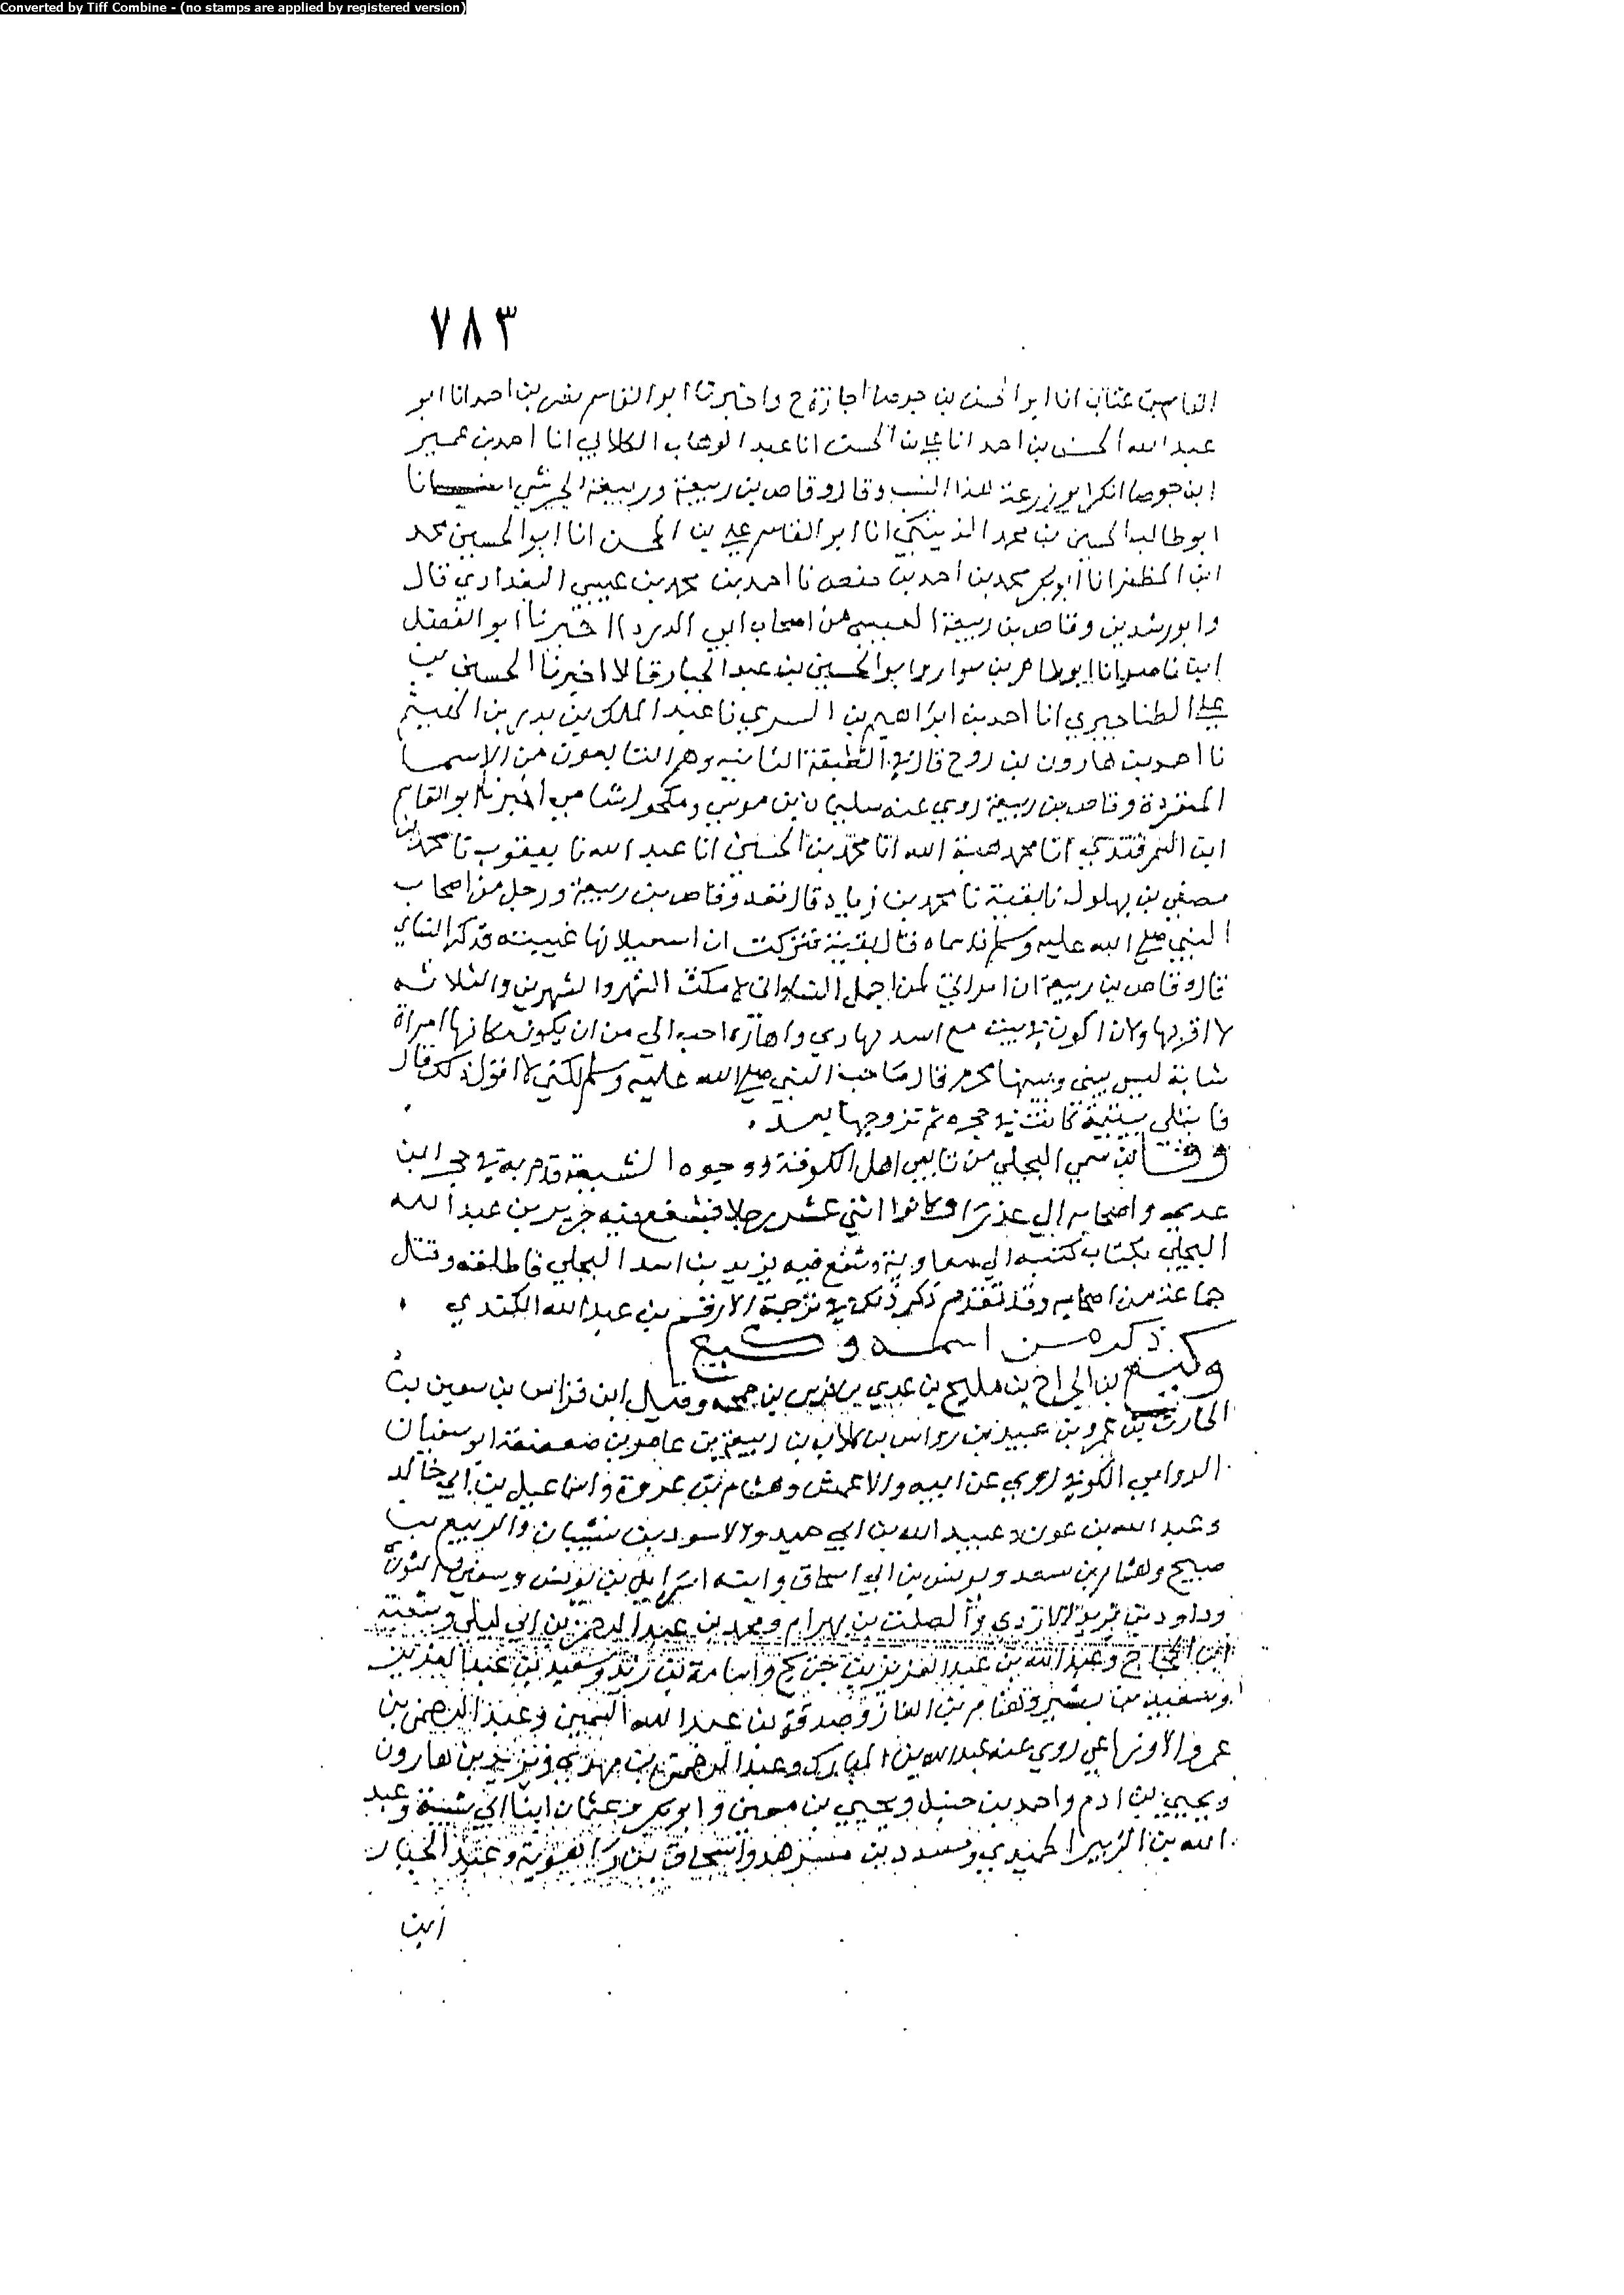 Converted by Tiff Combine - (no stamps are applied by registered version)
٧٨٣
القاسم بن عتاب انا ابو الحسن بن جوصا اجازة ح واخبرنا ابو القاسم نصر بن احمد انا ابو
عبد الله الحسن بن احمد انا علي بن الحسن انا عبد الوهاب الكلابي انا احمد بن عمير
ابن جوصا انكر ابو زرعة هذا النسب وقال وقاص بن ربيعة وربيعة الجرشي انا
ابو طالب الحسين بن محمد الزينبي انا ابو القاسم علي بن المحسن انا ابو الحسين محمد
ابن المظفر انا ابو بكر محمد بن احمد بن حفص نا احمد بن محمد بن عيسى البغدادي قال
وابو رشدين وقاص بن ربيعة العبسي من اصحاب ابي الدرداء اخبرنا ابو الفضل
ابن ناصر انا ابو طاهر بن سوار وابو الحسين بن عبد الجبار قالا اخبرنا الحسين بن
علي الطناجيري انا احمد بن ابراهيم بن السري نا عبد الملك بن بدر بن الهيثم
نا احمد بن هارون بن روح قال في الطبقة الثانيه وهم التابعون من الاسما
المنفردة وقاص بن ربيعة روى عنه سليمان بن موسى ومكحول شامي اخبرنا ابو القاسم
ابن السمرقندي انا محمد هبة الله انا محمد بن الحسين انا عبد الله نا يعقوب نا محمد بن
مصفى بن بهلول نا بقية نا محمد بن زياد قال وقاص بن ربيعة ورجل من اصحاب
النبي صلى الله عليه وسلم قد سماه فقال بقية فتركت ان اسميه
قال وقاص بن ربيعة ان امراتي لمن اجمل النساء واني لا مكث الشهر والشهرين والثلاثه
لا اقربها ولان اكون في بيت مع اسد احب الي من ان يكون مكانها امراة
شابة ليس بيني وبينها محرم فقال صاحب النبي صلى الله عليه وسلم لكني لا اقول ذلك قال
فابتلي بيتيمة كانت في حجره ثم تزوجها بعد
ورقا بن سمي البجلي من تابعي اهل الكوفة ووجوه الشيعة قدم به في حجر ابن
عدي واصحابه الى عذرا وكانوا اثني عشر رجلا فشفع فيه جرير بن عبد الله
البجلي بكتاب كتبه الى معاوية وشفع فيه يزيد بن اسد البجلي فاطلقه وقتل
جماعة من اصحابه وقد تقدم ذكر ذلك في ترجمة الارقم بن عبد الله الكندي
ذكر من اسمه وكيع
وكيع بن الجراح بن مليح بن عدي بن فرس بن جمجمه وقيل ابن فراس بن سفين بن
الحارث بن عمرو بن عبيد بن رواس بن كلاب بن ربيعة بن عامر بن صعصعة ابو سفيان
الرواسي الكوفي روى عن ابيه والاعمش وهشام بن عروة واسماعيل بن ابي خالد
وعبد الله بن عون وعبيد الله بن ابي حميد والاسود بن شيبان والربيع بن
صبيح وهشام بن سعد ويونس بن ابي اسحاق وابنه اسرائيل بن يونس وسفين الثوري
وداود بن يزيد الاودي والصلت بن بهرام ومحمد بن عبد الرحمن بن ابي ليلى وشعبة
ابن الحجاج وعبد الملك بن عبد العزيز بن جريج واسامة بن زيد وسعيد بن عبد العزيز
وسعيد بن بشير وهشام بن الغاز وصدقة بن عبد الله السمين وعبد الرحمن بن
عمرو الاوزاعي روى عنه عبد الله بن المبارك وعبد الرحمن بن مهدي ويزيد بن هارون
ويحيى بن ادم واحمد بن حنبل ويحيى بن معين وابو بكر وعثمان ابنا ابي شيبة وعبد
الله بن الزبير الحميدي ومسدد بن مسرهد واسحاق بن راهويه وعبد الجبار
ابن